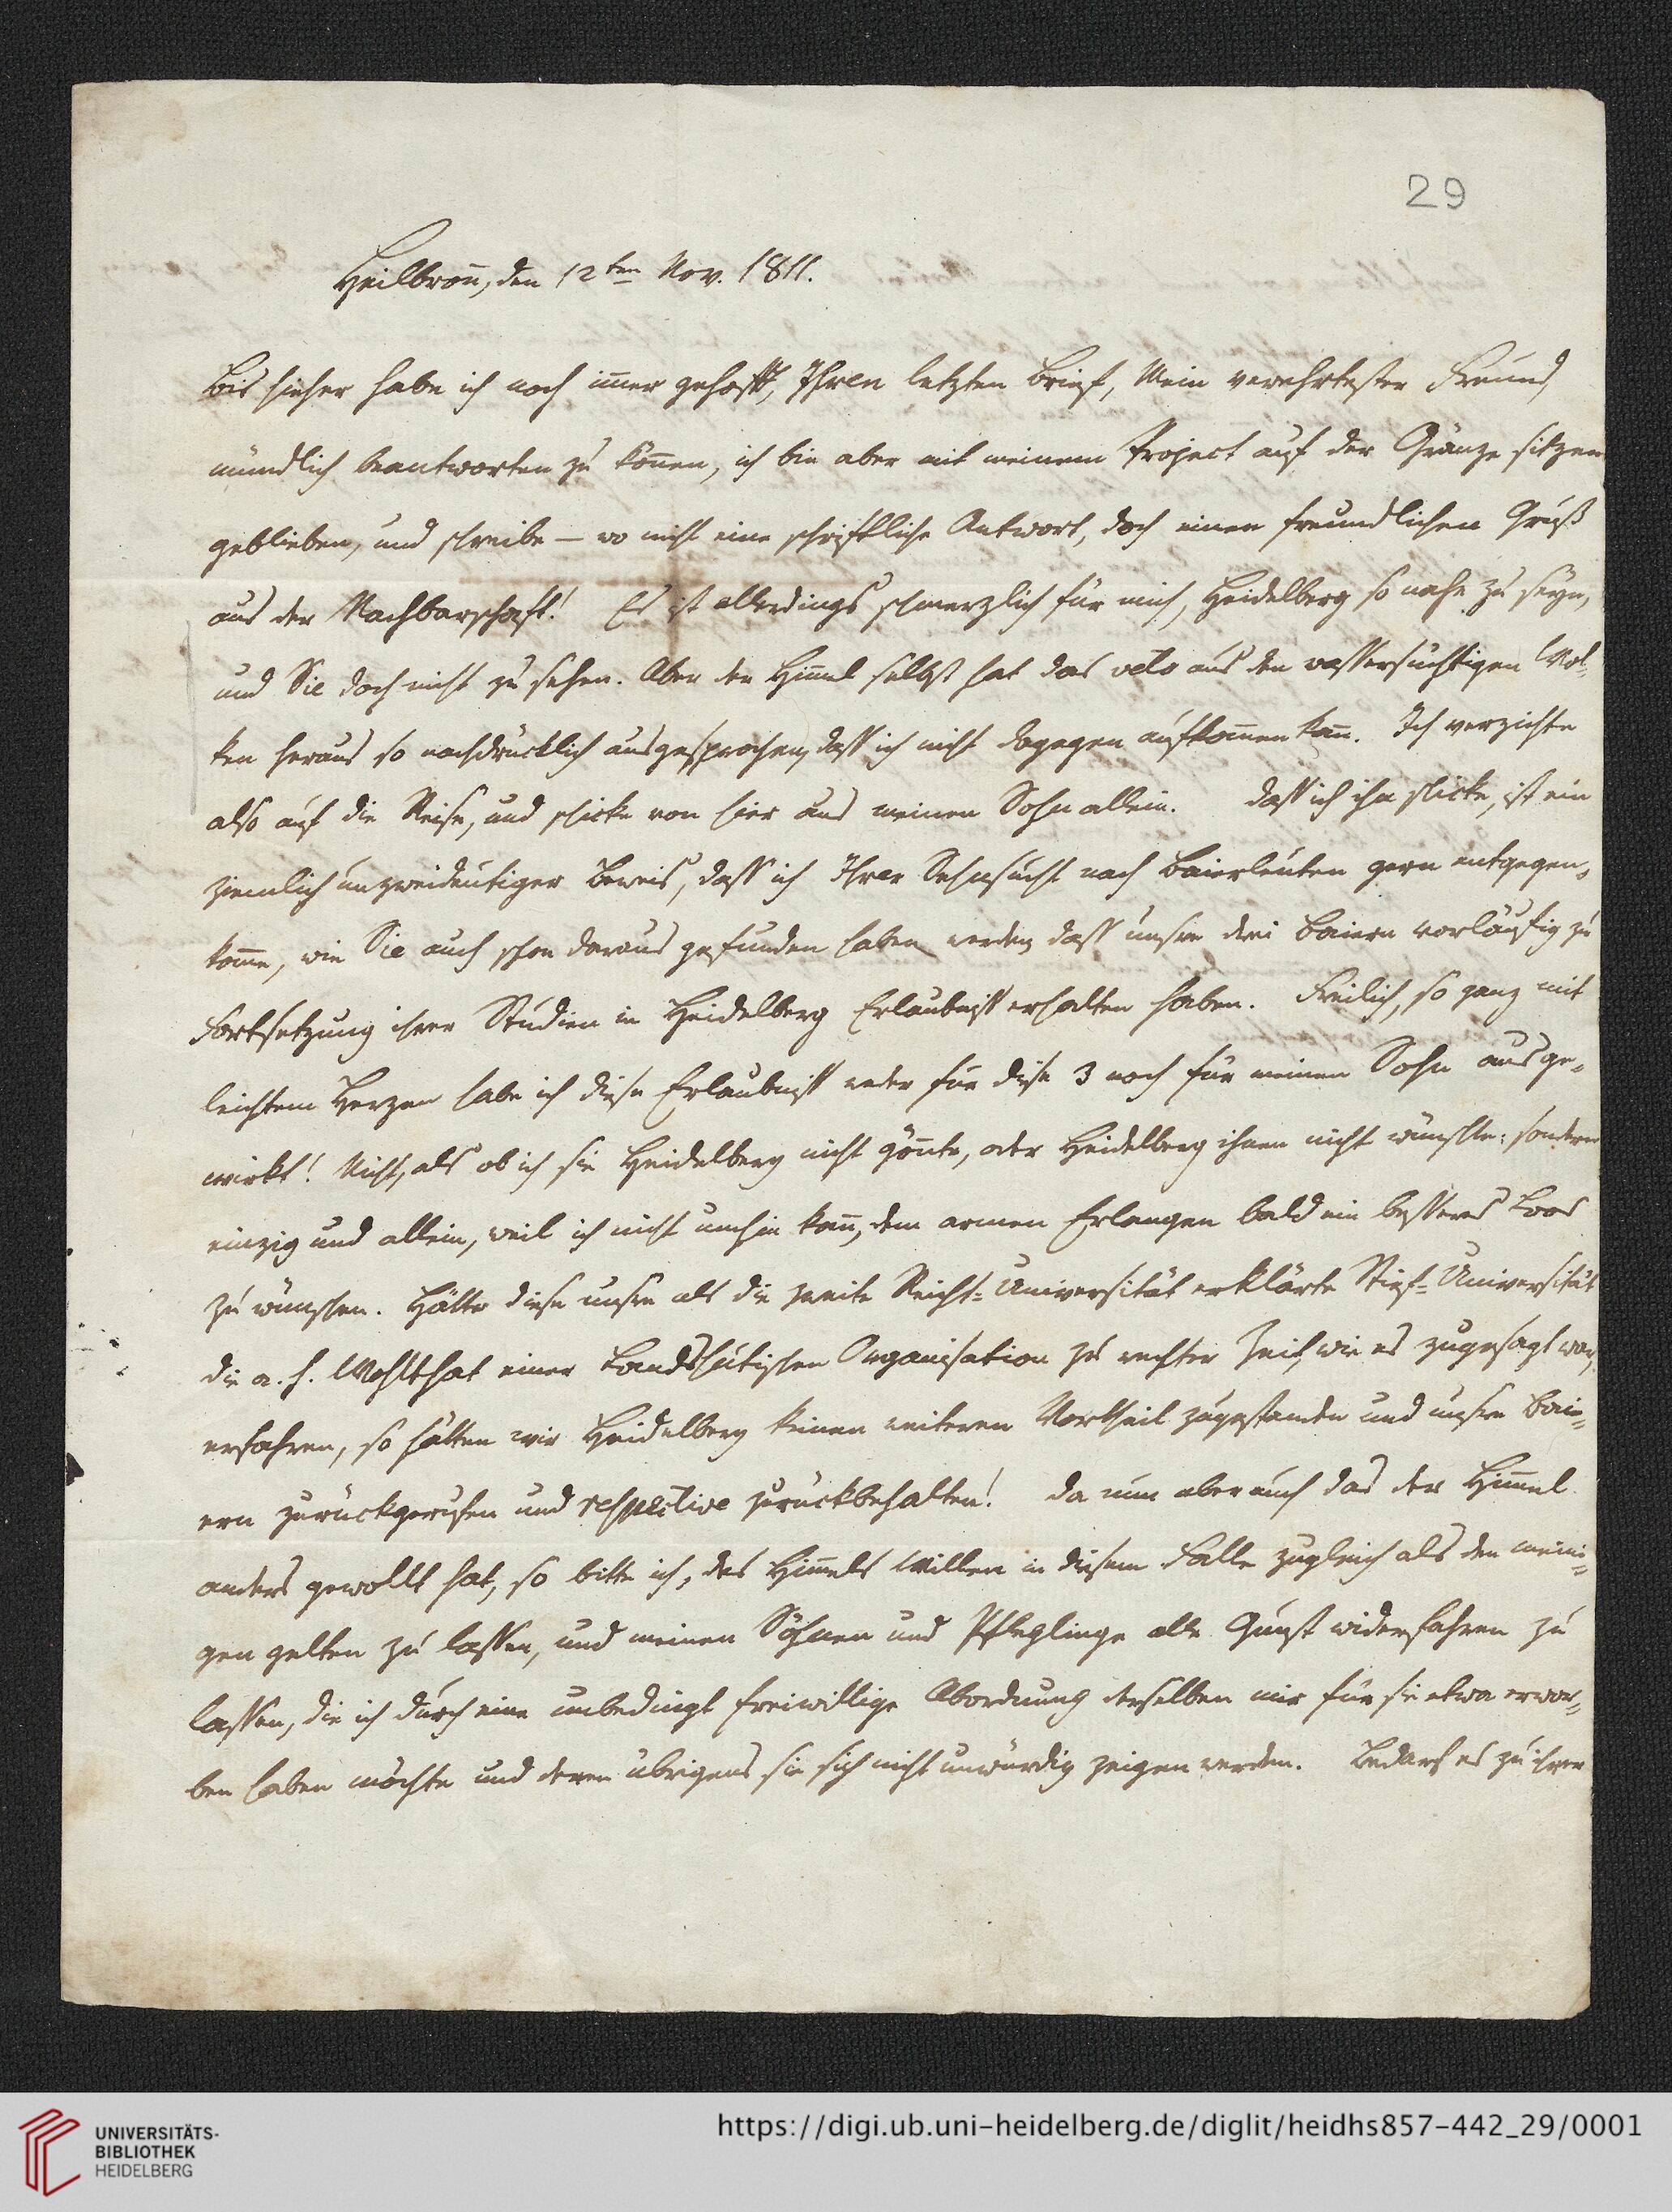 29
Heilbron̄, den 12ten Nov. 1811.
Bis hieher habe ich noch im̄er gehofft, Ihren letzten Brief, Mein verehrtester Freund,
mündlich beantworten zu kön̄en, ich bin aber mit meinem Project auf der Gränze sitzen
geblieben, und schreibe — wo nicht eine schriftliche Antwort, doch einen freundlichen Gruß
aus der Nachbarschaft! Es ist allerdings schmerzlich für mich, Heidelberg so nahe zu seyn,
und Sie doch nicht zu sehen. Aber der Him̄el selbst hat das veto aus den wassersüchtigen Wol-
ken heraus so nachdrücklich ausgesprochen, dass ich nicht dagegen aufkom̄en kan̄. Ich verzichte
also auf die Reise, und schicke von hier aus meinen Sohn allein. Dass ich ihn schicke, ist ein
ziemlich unzweideutiger Beweis, dass ich Ihrer Sehnsucht nach Baierleuten gern entgegen-
kom̄e, wie Sie auch schon daraus gefunden haben werden, dass unsre drei Baiern vorläufig zu
Fortsetzung ihrer Studien in Heidelberg Erlaubniss erhalten haben. Freilich, so ganz mit
leichtem Herzen habe ich diese Erlaubniss weder für diese 3 noch für meinen Sohn ausge-
wirkt! Nicht, als ob ich sie Heidelberg nicht gön̄te, oder Heidelberg ihnen nicht wünschte: sondern
einzig und allein, weil ich nicht umhin kan̄, dem armen Erlangen bald ein besseres Loos
zu wünschen. Hätte diese unsre als die zweite Reichs-Universität erklärte Stief-Universität
die a. h. Wohlthat einer Landshutischen Organisation zu rechter Zeit, wie es zugesagt war,
erfahren, so hätten wir Heidelberg keinen weiteren Vortheil zugestanden und unsre Bai-
ern zurückgerufen und respective zurückbehalten! Da nun aber auch das der Him̄el
anders gewollt hat, so bitte ich, des Him̄els Willen in diesem Falle zugleich als den meini-
gen gelten zu lassen, und meinen Söhnen und Pfleglinge alle Gunst widerfahren zu
lassen, die ich durch eine unbedingt freiwillige Abordnung derselben mir für sie etwa erwor-
ben haben möchte und deren übrigens sie sich nicht unwürdig zeigen werden. Bedarf es zu ihrer
UNIVERSITÄTS-
BIBLIOTHEK
HEIDELBERG
https://digi.ub.uni-heidelberg.de/diglit/heidhs857-442_29/0001